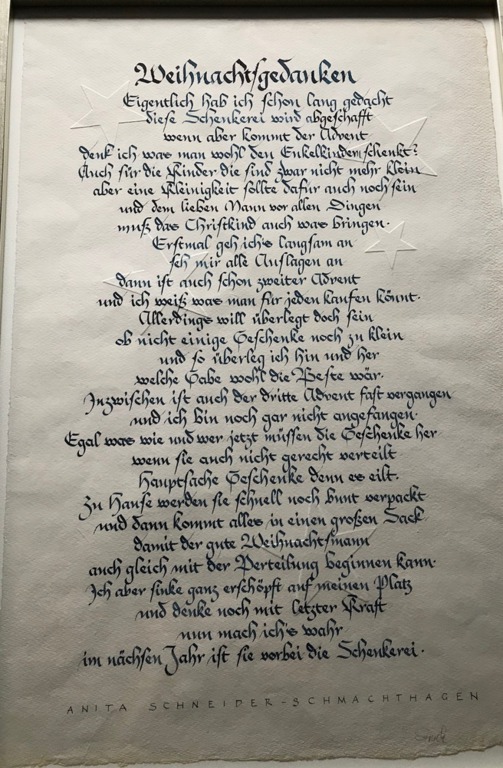 Weihnachtsgedanken
Eigentlich hab ich schon lang gedacht
diese Schenkerei wird abgeschafft
wenn aber kommt der Advent
denk ich was man wohl den Enkelkindern schenkt?
Auch für die Kinder die sind zwar nicht mehr klein
aber eine Kleinigkeit sollte dafür auch noch sein
und dem lieben Mann vor allen Dingen
muß das Christkind auch was bringen.
Erstmal geh ich's langsam an
seh mir alle Auslagen an
dann ist auch schon zweiter Advent
und ich weiß was man für jeden kaufen könnt.
Allerdings will überlegt doch sein
ob nicht einige Geschenke noch zu klein
und so überleg ich hin und her
welche Gabe wohl die Beste wär.
Inzwischen ist auch der dritte Advent fast vergangen
und ich bin noch gar nicht angefangen.
Egal was wie und wer jetzt müssen die Geschenke her
wenn sie auch nicht gerecht verteilt
Hauptsache Geschenke denn es eilt.
Zu Hause werden sie schnell noch bunt verpackt
und dann kommt alles in einen großen Sack
damit der gute Weihnachtsmann
auch gleich mit der Verteilung beginnen kann.
Ich aber sinke ganz erschöpft auf meinen Platz
und denke noch mit letzter Kraft
nun mach ich's wahr
im nächsen Jahr ist sie vorbei die Schenkerei.
ANITA SCHNEIDER-SCHMACHTHAGEN